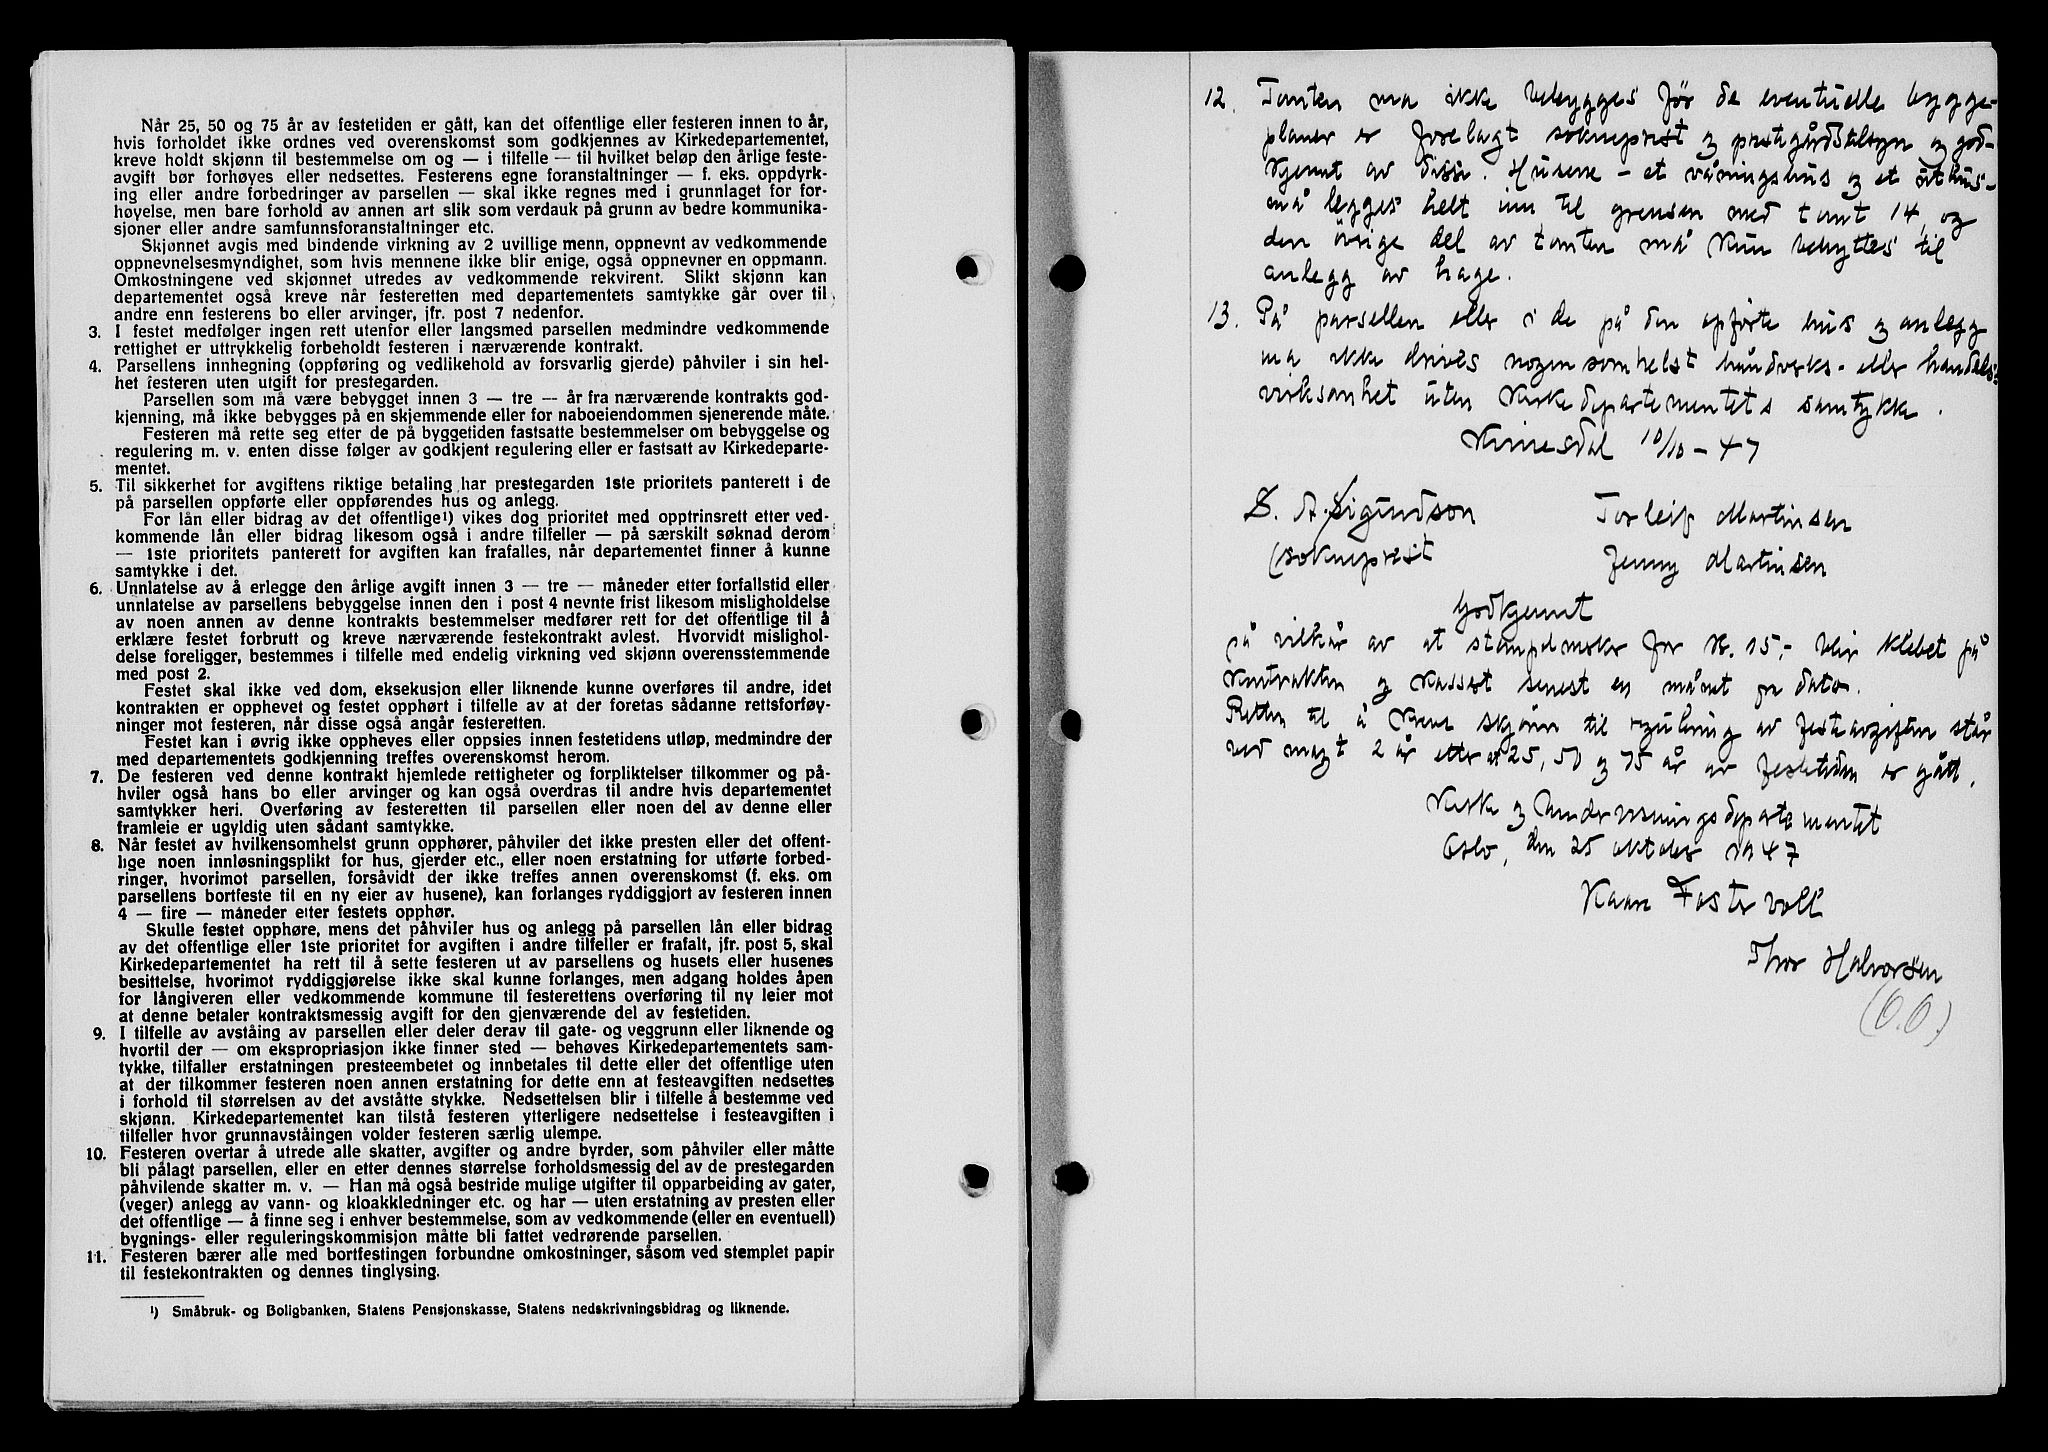 Når 25, 50 og 75 år av festetiden er gått, kan det offentlige eller festeren innen to år,
hvis forholdet ikke ordnes ved overenskomst som godkjennes av Kirkedepartementet,
kreve holdt skjønn til bestemmelse om og — i tilfelle — til hvilket beløp den årlige feste-
avgift bør forhøyes eller nedsettes. Festerens egne foranstaltninger — f. eks. oppdyrk-
ing eller andre forbedringer av parsellen — skal ikke regnes med i grunnlaget for for-
høyelse, men bare forhold av annen art slik som verdauk på grunn av bedre kommunika-
sjoner eller andre samfunnsforanstaltninger etc.
Skjønnet avgis med bindende virkning av 2 uvillige menn, oppnevnt av vedkommende
oppnevnelsesmyndighet, som hvis mennene ikke blir enige, også oppnevner en oppmann.
Omkostningene ved skjønnet utredes av vedkommende rekvirent. Slikt skjønn kan
departementet også kreve når festeretten med departementets samtykke går over til
andre enn festerens bo eller arvinger, jfr. post 7 nedenfor.
3. I festet medfølger ingen rett utenfor eller langsmed parsellen medmindre vedkommende
rettighet er uttrykkelig forbeholdt festeren i nærværende kontrakt.
4. Parsellens innhegning (oppføring og vedlikehold av forsvarlig gjerde) påhviler i sin hel-
het festeren uten utgift for prestegarden.
Parsellen som må være bebygget innen 3 — tre — år fra nærværende kontrakts god-
kjenning, må ikke bebygges på en skjemmende eller for naboeiendommen sjenerende måte.
Festeren må rette seg etter de på byggetiden fastsatte bestemmelser om bebyggelse og
regulering m. v. enten disse følger av godkjent regulering eller er fastsatt av Kirkedeparte-
mentet.
5. Til sikkerhet for avgiftens riktige betaling har prestegarden 1ste prioritets panterett i de
på parsellen oppførte eller oppførendes hus og anlegg.
For lån eller bidrag av det offentlige¹) vikes dog prioritet med opptrinsrett etter ved-
kommende lån eller bidrag likesom også i andre tilfeller — på særskilt søknad derom
— 1ste prioritets panterett for avgiften kan frafalles, når departementet finner å kunne
samtykke i det.
6. Unnlatelse av å erlegge den årlige avgift innen 3 — tre — måneder etter forfallstid eller
unnlatelse av parsellens bebyggelse innen den i post 4 nevnte frist likesom misligholdelse
av noen annen av denne kontrakts bestemmelser medfører rett for det offentlige til å
erklære festet forbrutt og kreve nærværende festekontrakt avlest. Hvorvidt misligho-
delse foreligger, bestemmes i tilfelle med endelig virkning ved skjønn overensstemmende
med post 2.
Festet skal ikke ved dom, eksekusjon eller liknende kunne overføres til andre, idet
kontrakten er opphevet og festet opphørt i tilfelle av at der foretas sådanne rettsforføy-
ninger mot festeren, når disse også angår festeretten.
Festet kan i øvrig ikke oppheves eller oppsies innen festetidens utløp, medmindre der
med departementets godkjenning treffes overenskomst herom.
7. De festeren ved denne kontrakt hjemlede rettigheter og forpliktelser tilkommer og på-
hviler også hans bo eller arvinger og kan også overdras til andre hvis departementet
samtykker heri. Overføring av festeretten til parsellen eller noen del av denne eller
framleie er ugyldig uten sådant samtykke.
8. Når festet av hvilkensomhelst grunn opphører, påhviler det ikke presten eller det offent-
lige noen innløsningsplikt for hus, gjerder etc., eller noen erstatning for utførte forbed-
ringer, hvorimot parsellen, forsåvidt der ikke treffes annen overenskomst (f. eks. om
parsellens bortfeste til en ny eier av husene), kan forlanges ryddiggjort av festeren innen
4 — fire — måneder etter festets opphør.
Skulle festet opphøre, mens det påhviler hus og anlegg på parsellen lån eller bidrag
av det offentlige eller 1ste prioritet for avgiften i andre tilfeller er frafalt, jfr. post 5, skal
Kirkedepartementet ha rett til å sette festeren ut av parsellens og husets eller husenes
besittelse, hvorimot ryddiggjørelse ikke skal kunne forlanges, men adgang holdes åpen
for långiveren eller vedkommende kommune til festerettens overføring til ny leier mot
at denne betaler kontraktsmessig avgift for den gjenværende del av festetiden.
9. I tilfelle av avståing av parsellen eller deler derav til gate- og veggrunn eller liknende og
hvortil der — om ekspropriasjon ikke finner sted — behøves Kirkedepartementets sam-
tykke, tilfaller erstatningen presteembetet og innbetales til dette eller det offentlige uten
at der tilkommer festeren noen annen erstatning for dette enn at festeavgiften nedsettes
i forhold til størrelsen av det avståtte stykke. Nedsettelsen blir i tilfelle å bestemme ved
skjønn. Kirkedepartementet kan tilstå festeren ytterligere nedsettelse i festeavgiften i
tilfeller hvor grunnavståingen volder festeren særlig ulempe.
10. Festeren overtar å utrede alle skatter, avgifter og andre byrder, som påhviler eller måtte
bli pålagt parsellen, eller en etter dennes størrelse forholdsmessig del av de prestegarden
påhvilende skatter m. v. — Han må også bestride mulige utgifter til opparbeiding av gater,
(veger) anlegg av vann- og kloakkledninger etc. og har — uten erstatning av presten eller
det offentlige — å finne seg i enhver bestemmelse, som av vedkommende (eller en eventuell)
bygnings- eller reguleringskommisjon måtte bli fattet vedrørende parsellen.
11. Festeren bærer alle med bortfestingen forbundne omkostninger, såsom ved stemplet papir
til festekontrakten og dennes tinglysing.
¹) Småbruk- og Boligbanken, Statens Pensjonskasse, Statens nedskrivningsbidrag og liknende.
12. Tomten må ikke bebygges før de eventuelle bygge-
planer er forelagt sokneprest og prestegårdstilsyn og god-
kjennt av disse. Husene – et våningshus og et uthus –
må legges helt inn til grensen med tomt 14, og
den øvrige del av tomten må kun benyttes til
anlegg av hage.
13. På parsellen eller i de på den opførte hus og anlegg
må ikke drives nogensomhelst håndverks- eller handels-
virksomhet uten Kirkedepartementets samtykke.
Kvinesdal 10/10 – 47
S. A. Sigundson Torleif Martinsen
(sokneprest Jenny Martinsen
Godkjennt
på vilkår av at stempelmerker for kr. 15,- blir klebet på
kontrakten og kassert senest en månet fra dato.
Retten til å kreve skjønn til regulering av festeavgiften står
ved magt 2 år etter at 25, 50 og 75 år av festetiden er gått.
Kirke og Undervisningsdepartementet
Oslo, den 25 oktober 1947
Kaare Fostervoll
Thor Halvorsen
(O.O.)